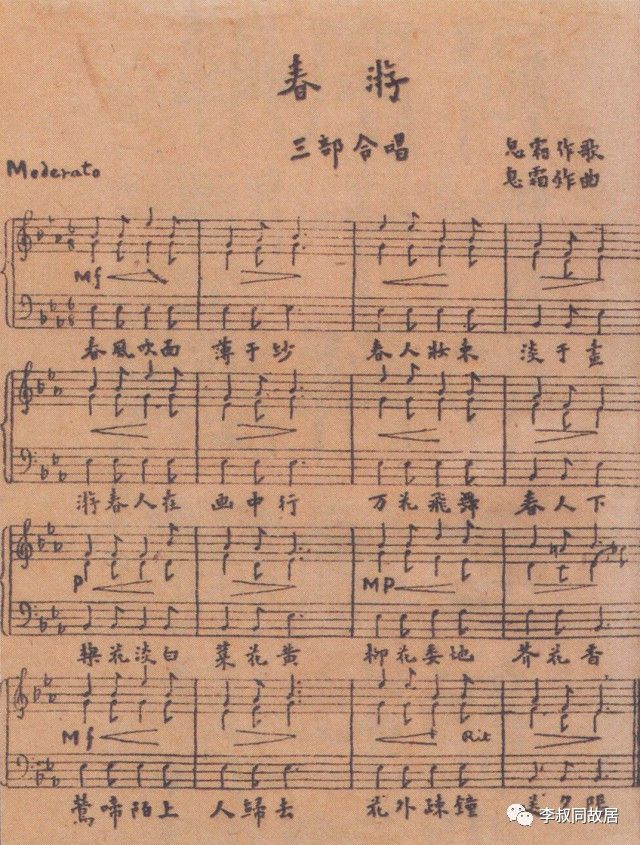 春游
三部合唱
Moderato
息霜作歌
息霜作曲
6 8
Mf
6 8
春風吹面 薄于纱 春人妝束 淡于畫
游春人在 画中行 万花飛舞 春人下
P MP
梨花淡白 菜花黄 柳花委地 芥花香
Mf Rit
鶯啼陌上 人歸去 花外疎鐘
李叔同故居